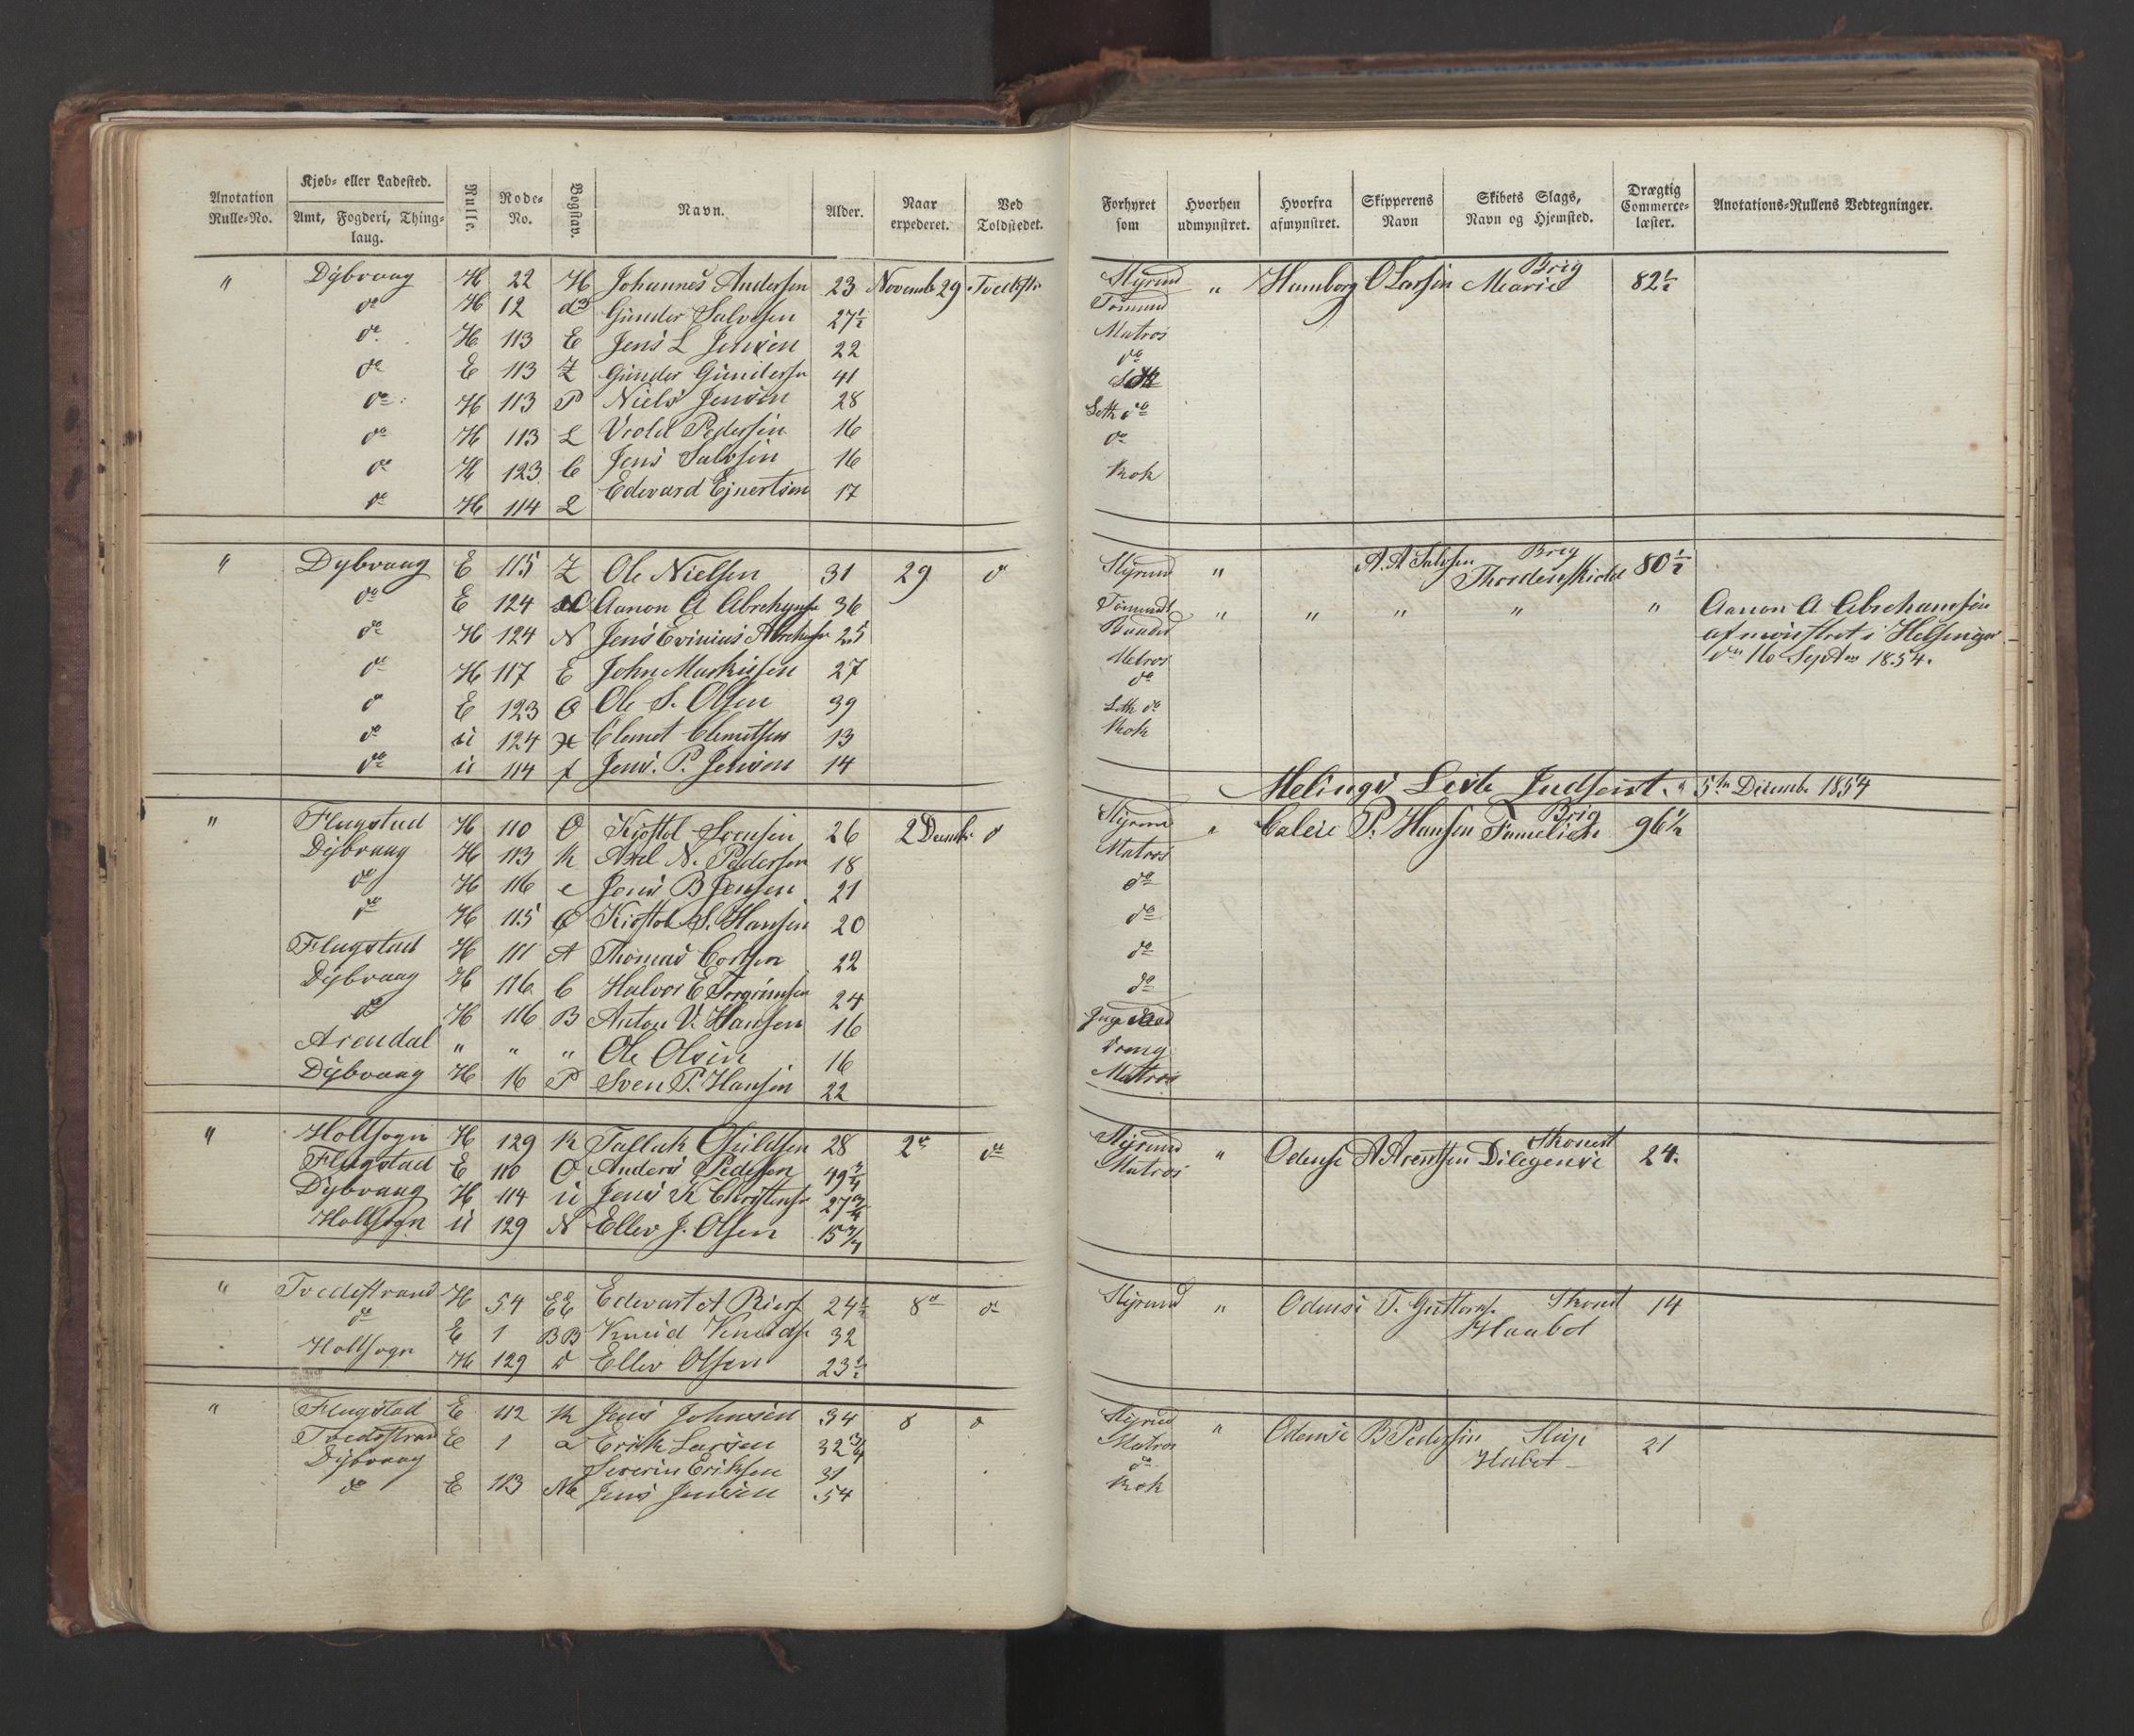 Anotation Rulle-No. Kjøb- eller Ladested. Amt, Fogderi, Thing-laug. Rulle. Rode-No. Bogstav. Navn. Alder. Naar expederet. Ved Toldstedet.
" Dybvaag H 22 H Johannes Andersen 23 November 29
do H 12 Gunder Salvesen 27½
do H 113 E Jens L Jensen 22
do E 113 Z Gunder Gundersen 41
do H 113 P Niels Jensen 28
do H 113 L Pedersen 16
do H 123 C Jens Salvesen 16
do H 114 L Edevard Ejvertsen 17
" Dybvaag E 115 Z Ole Nielsen 31 29 do
do E 124 Aanon A 36
do H 124 N Jens 25
do H 117 E John Markusen 27
do E 123 O Ole S. Olsen 39
do u 124 Clemet Clemetsen 13
do u 114 f Jens. P. Jensen 14
" Flagstad H 110 O Kjøstol 26 2 Decemb: do
Dybvaag H 113 K Axel N. Pedersen 18
do H 116 e Jens B Jensen 21
do H 115 Kjøstol S. Hansen 20
Flagstad H 111 A Thomas 22
Dybvaag H 116 C Halvor E Torgrimsen 24
do H 116 B Anton V. Hansen 16
Arendal " " " Ole Olsen 16
Dybvaag H 16 P Sven P. Hansen 22
" Holtsogn H 129 K Tallak 28 2do do
Flagstad E 110 O Anders Pedersen 49¾
Dybvaag H 114 u Jens K Christensen 27¾
Holtsogn u 129 N Ellev J. Olsen 15¾
" Tvedestrand H 54 EE Edevart A 24½ 8do do
do E 1 BB Knud Knuds. 32
Holtsogn H 129 Ellev Olsen 23½
" Flagstad E 112 K Jens Johnsen 34 8 do
Tvedestrand E 1 a Erik Larsen 32¾
Dybvaag Severin Eriksen 31
do E 113 Jens Jensen 54
Forhyret som Hvorhen udmynstret. Hvorfra afmynstret. Skipperens Navn Skibets Slags, Navn og Hjemsted. Drægtig Commerce-læster. Anotations-Rullens Vedtegninger.
Styrmd " Hamborg O Larsen Brig Marie 82½
Tømmd
Matros
do
do
Kok
Styrmd " Brig Thordenskiold 80½
Tømmd " " " " " Aanon A Abrahamsen
afmønstret i Helsingør
dn 16 Septbr 1854.
Matros
do
Letm do
Kok
Melings Liste Indsent d 5te Decembr 1854
Styrmd " P. Hansen Brig 96½
Matros
do
do
do
do
Matros
Styrmd " Odense Dilegense 24.
Matros
Styrmd " Odense Haabet 14
Styrmd " Odense B Pedersen Slup Habet 21
Matros
do
Kok